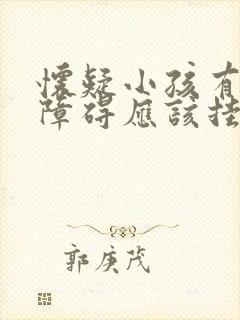 懷疑小孩有
障碍應該挂
郭庚茂